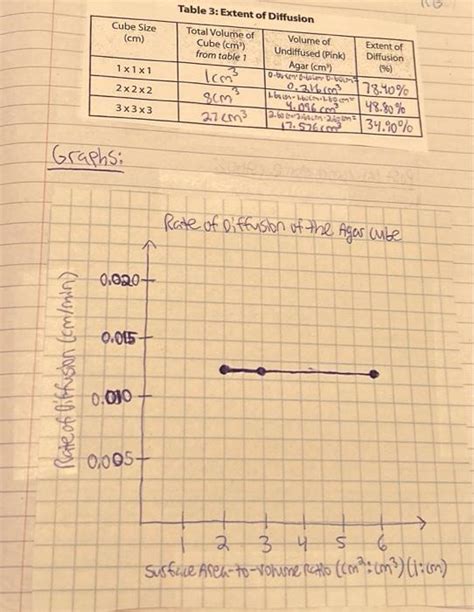 Table 3: Extent of Diffusion
Cube Size (cm) Total Volume of Cube (cm³) from table 1 Volume of Undiffused (Pink) Agar (cm³) Extent of Diffusion (%)
1 x 1 x 1 1cm³ 0.216cm³ 78.40%
2 x 2 x 2 8cm³ 4.096cm³ 48.80%
3 x 3 x 3 27cm³ 17.576cm³ 34.90%
Graphs:
Rate of Diffusion of the Agar cube
Rate of Diffusion (cm/min)
0.020
0.015
0.010
0.005
1 2 3 4 5 6
Surface Area-to-volume Ratio (cm²:cm³)(1:cm)